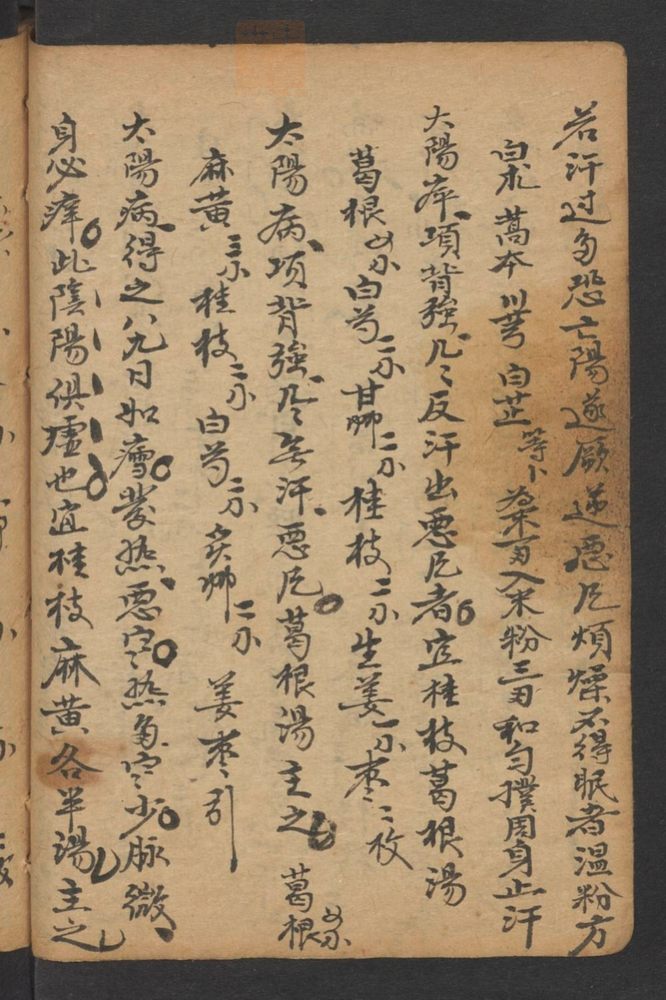 若汗过多恐亡陽遂厥逆恶风煩燥不得眠者温粉方
白朮 藁本 川芎 白芷 等卜 為末 入米粉三 和匀撲周身止汗
太陽症項背強几〻反汗出恶风者宜桂枝葛根湯
葛根 白芍二 甘 二 桂枝二 生姜一 枣二枚
太陽病项背強几〻無汗恶风葛根湯主之 葛根
麻黄三 桂枝二 白芍二 炙 二 姜枣引
太陽病得之八九日如瘧發热恶寒热多寒少脉微
身必痒此陰陽俱虛也宜桂枝麻黄各半湯主之